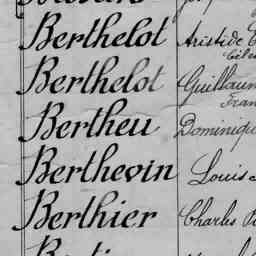 Berthelot Aristide
Berthelot Guillaum
Fran
Bertheu Dominiqu
Berthevin Louis
Berthier Charles